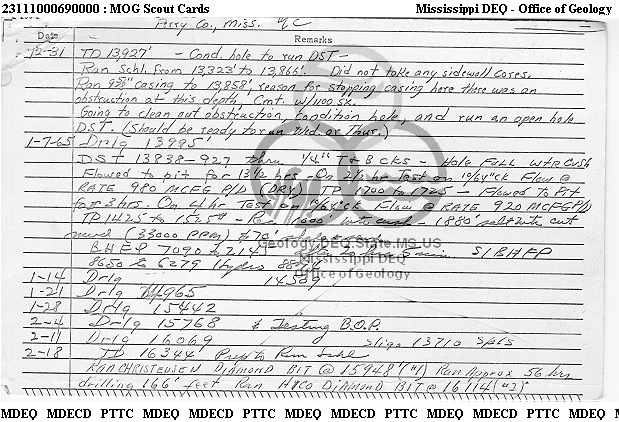 23111000690000 : MOG Scout Cards Mississippi DEQ - Office of Geology
Perry Co., Miss.
Date Remarks
12-31 TD 13,927' - Cond. hole to run DST -
Ran Schl. from 13,323' to 13,866'. Did not take any sidewall cores.
Ran 9 5/8" casing to 13,858', reason for stopping casing here there was an
obstruction at this depth, Cmt. w/1100 sx.
Going to clean out obstruction, condition hole, and run an open hole
DST. (Should be ready to run Wed. or Thur.)
1-7-65 Drlg 13995'
DST 13838-927 thru 1/4" T & B CKS - Hole Full wtr Cush
Flowed to pit for 13 1/2 hrs - On 2 1/2 hr Test on 10/64" ck Flow @
RATE 980 MCFG P/D (DRY) TP 1700 to 1725 - Flowed to Pit
for 3 hrs. On 4 hr Test on 10/64" ck Flow @ RATE 920 MCFGP/D
TP 1425 to 1525# - Rec 1000' wtr cush - 1880' salt wtr cut
mud (33000 PPM) & 70'
BHFP 7090 & 2145 min SIBHFP
8650 & 6279 Hydro
Geology.DEQ.State.MS.US
Mississippi DEQ
Office of Geology
1-14 Drlg 14509
1-21 Drlg 14965
1-28 Drlg 15442
2-4 Drlg 15768 & Testing B.O.P.
2-11 Drlg 16069 Sligo 13710 Spls
2-18 TD 16344 Prep to Run Schl
RAN CHRISTENSEN DIAMOND BIT @ 15948' (#1) Ran Approx 56 hrs
drilling 166' feet Ran HYCO DIAMOND BIT @ 16114 (#2)
MDEQ MDECD PTTC MDEQ MDECD PTTC MDEQ MDECD PTTC MDEQ MDECD PTTC MDEQ MDE